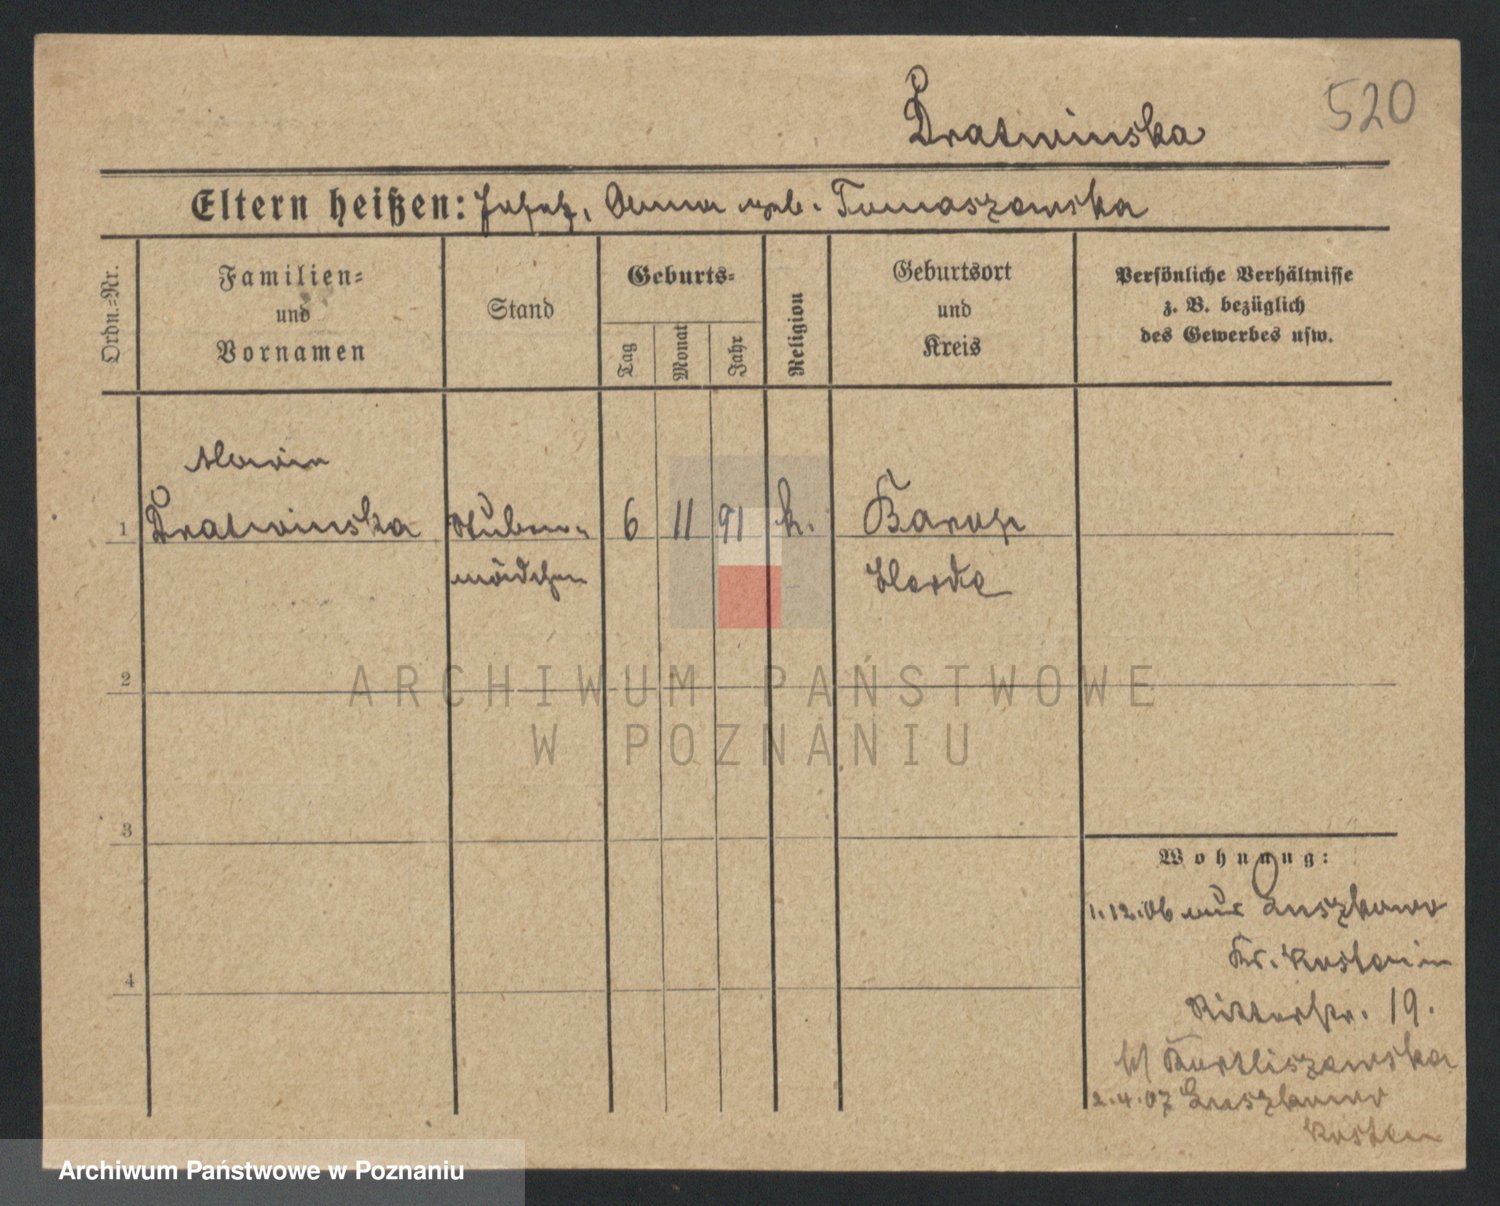 520
Dratwinska
Eltern heißen: Josef, Anna geb. Tomaszewska
Ordn.-Nr.
Familien-
und
Vornamen
Stand
Geburts-
Tag
Monat
Jahr
Religion
Geburtsort
und
Kreis
Persönliche Verhältnisse
z. B. bezüglich
des Gewerbes usw.
Maria
1 Dratwinska Stuben- 6 11 91 k. Barop
mädchen Hörde
2
ARCHIWUM PAŃSTWOWE
W POZNANIU
3
Wohnung:
1.12.06 aus Luszkowo
Kr. Kosten in
4
Ritterstr. 19.
b/
2.4.07 Luszkowo
Kosten
Archiwum Państwowe w Poznaniu